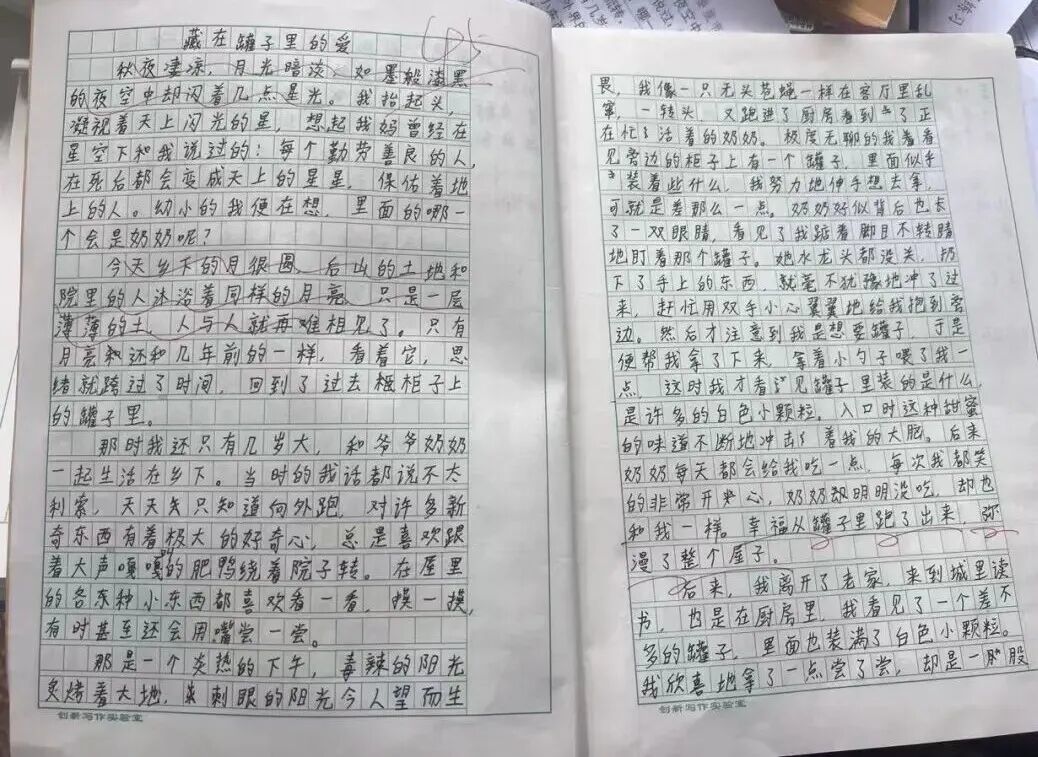 藏在罐子里的爱
秋夜凄凉，月光暗淡，如墨般漆黑
的夜空中却闪着几点星光。我抬起头，
凝视着天上闪光的星，想起我妈曾经在
星空下和我说过的：每个勤劳善良的人，
在死后都会变成天上的星星，保佑着地
上的人。幼小的我便在想，里面的哪一
个会是奶奶呢？
今天乡下的月很圆，后山的土地和
院里的人沐浴着同样的月亮，只是一层
薄薄的土，人与人就再难相见了。只有
月亮和还和几年前的一样，看着它，思
绪就跨过了时间，回到了过去柜子上
的罐子里。
那时我还只有几岁大，和爷爷奶奶
一起生活在乡下。当时的我话都说不太
利索，天天只知道向外跑，对许多新
奇东西有着极大的好奇心，总是喜欢跟
着大声嘎嘎的肥鸭绕着院子转。在屋里
的各种小东西都喜欢看一看，摸一摸，
有时甚至还会用嘴尝一尝。
那是一个炎热的下午，毒辣的阳光
炙烤着大地，刺眼的阳光令人望而生
创新写作实验室
畏，我像一只无头苍蝇一样在客厅里乱
窜，一转头，又跑进了厨房看到了正
在忙活着的奶奶。极度无聊的我看着
见旁边的柜子上有一个罐子，里面似乎
装着些什么，我努力地伸手想去拿，
可就是差那么一点。奶奶好似背后也长
了一双眼睛，看见了我踮着脚目不转睛
地盯着那个罐子。她水龙头都没关，扔
下了手上的东西，就毫不犹豫地冲了过
来，赶忙用双手小心翼翼地给我抱到旁
边。然后才注意到我是想要罐子，于是
便帮我拿了下来，拿着小勺子喂了我一
点，这时我才看见罐子里装的是什么，
是许多的白色小颗粒。入口时这种甜蜜
的味道不断地冲击着我的大脑。后来
奶奶每天都会给我吃一点，每次我都笑
的非常开心，奶奶明明没吃，却也
和我一样。幸福从罐子里跑了出来，弥
漫了整个屋子。
后来，我离开了老家，来到城里读
书，也是在厨房里，我看见了一个差不
多的罐子，里面也装满了白色小颗粒。
我欣喜地拿了一点尝了尝，却是一股
创新写作实验室